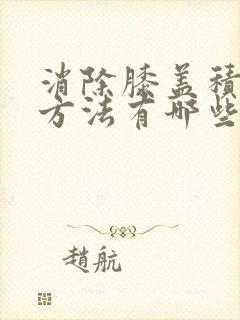 消除膝盖积
方法有哪些
趙航